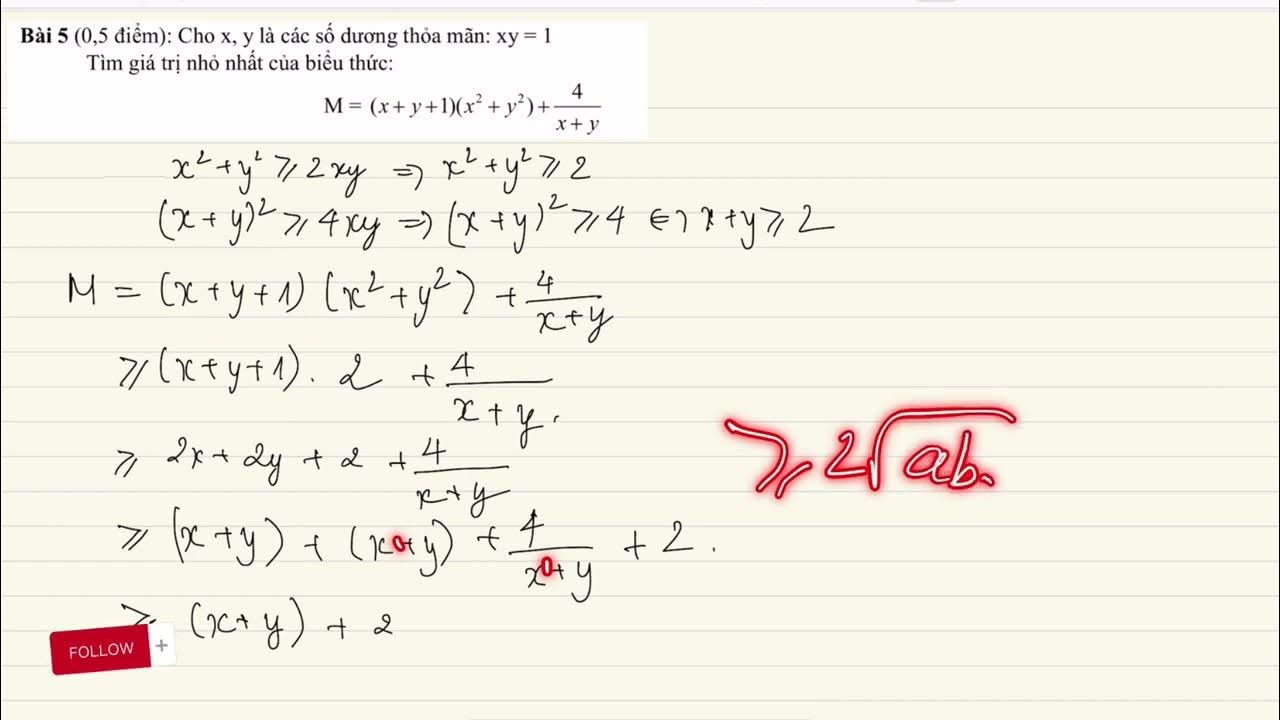 Bài 5 (0,5 điểm): Cho x, y là các số dương thỏa mãn: xy = 1
Tìm giá trị nhỏ nhất của biểu thức:
M = (x + y + 1)(x² + y²) + 4/(x + y)
x² + y² ⩾ 2xy ⇒ x² + y² ⩾ 2
(x + y)² ⩾ 4xy ⇒ (x + y)² ⩾ 4 ⇔ x + y ⩾ 2
M = (x + y + 1) (x² + y²) + 4/(x + y)
⩾ (x + y + 1) . 2 + 4/(x + y) .
⩾ 2x + 2y + 2 + 4/(x + y)
⩾ 2√ab.
⩾ (x + y) + (x + y) + 4/(x + y) + 2 .
⩾ (x + y) + 2
FOLLOW +